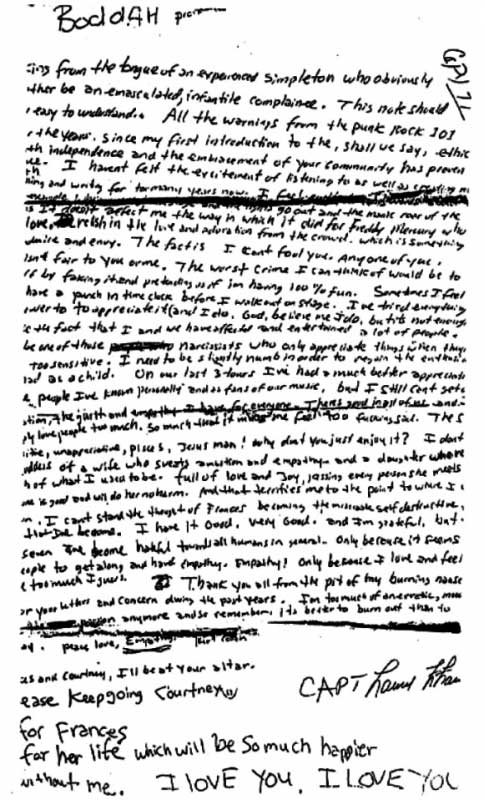 BoddAH
ing from the tongue of an experienced simpleton who obviously
ther be an emasculated, infantile complainee. This note should
easy to understand. All the warnings from the punk Rock 101
the years. since my first introduction to the, shall we say, ethic
th independence and the embracement of your community has proven
I havent felt the excitement of listening to as well as creating
and writing for too many years now. I feel
affect me the way in which it did for freddy Mercury who
love, relish in the love and adoration from the crowd. which is something
admire and envy. The fact is I cant fool you. Any one of you.
isnt fair to you or me. The worst crime I can think of would be to
by faking it and pretending as if im having 100% fun. Sometimes I feel
have a punch in time clock before I walk out on stage. I've tried everything
ower to appreciate it (and I do. God, believe me I do, but its not enough
the fact that I and we have affected and entertained a lot of people.
be one of those narcissists who only appreciate things when they
too sensitive. I need to be slightly numb in order to regain the enthusia
as a child. On our last 3 tours I've had a much better appreciati
people I've known personally and as fans of our music, but I still cant get
the guilt and empathy I have for everyone. Theres good in all of us and
ly love people too much. So much that it makes me feel too fucking sad. The s
unappreciative, pisces, Jesus man! why dont you just enjoy it? I dont
of a wife who sweats ambition and empathy and a daughter who re
of what I used to be. full of love and Joy, kissing every person she meets
is good and will do her no harm. And that terrifies me to the point to where I
I cant stand the thought of Frances becoming the miserable self destructive,
that Ive become. I have it Good, very Good. and I'm grateful, but
seven Ive become hateful towards all humans in general. Only because it seems
eople to get along and have empathy. Empathy! Only because I love and feel
too much I guess. Thank you all from the pit of my burning nause
or your letters and concern during the past years. I'm too much of an erratic, moo
anymore and so remember, its better to burn out than to
peace love, Empathy. Kurt Cobain
and Courtney, I'll be at your altar.
ease Keep going Courtney
for Frances
for her life which will be So much happier
without me. I LOVE YOU. I LOVE YOU